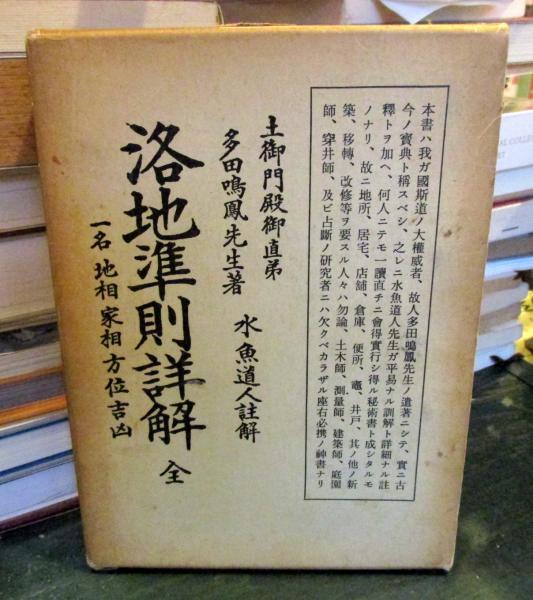 本書ハ我ガ國斯道ノ大權威者、故人多田鳴鳳先生ノ遺著ニシテ、實ニ古
今ノ寶典ト稱スベシ、之レニ水魚道人先生ガ平易ナル訓解ト詳細ナル註
釋トヲ加ヘ、何人ニテモ一讀直チニ會得實行シ得ル秘術書ト成シタルモ
ノナリ、故ニ地所、居宅、店舗、倉庫、便所、竈、井戸、其ノ他ノ新
築、移轉、改修等ヲ要スル人々ハ勿論、土木師、測量師、建築師、庭園
師、穿井師、及ビ占斷ノ研究者ニハ欠クベカラザル座右必携ノ神書ナリ
土御門殿御直弟
多田鳴鳳先生著 水魚道人註解
洛地準則詳解 全
一名 地相家相方位吉凶